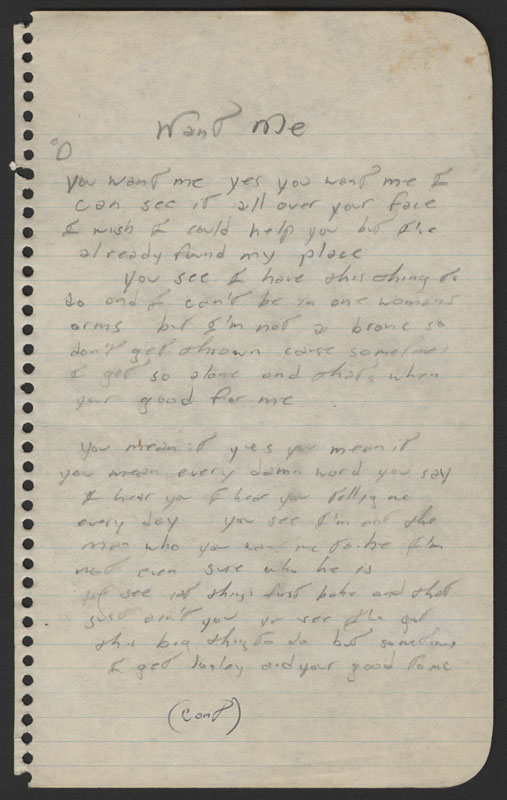 Want Me
You want me yes you want me I
can see it all over your face
I wish I could help you but I've
already found my place
You see I have this thing to
do and I can't be in one womans
arms but I'm not a bronc so
don't get thrown cause sometimes
I get so alone and thats when
your good for me
You mean it yes you mean it
you mean every damn word you say
I hear you I hear you telling me
every day you see I'm not the
man who you want me to be I'm
not even sure who he is
see things first and that
just ain't you see I've got
this big thing to do but sometimes
I get lonley and your good to me
(Cont)